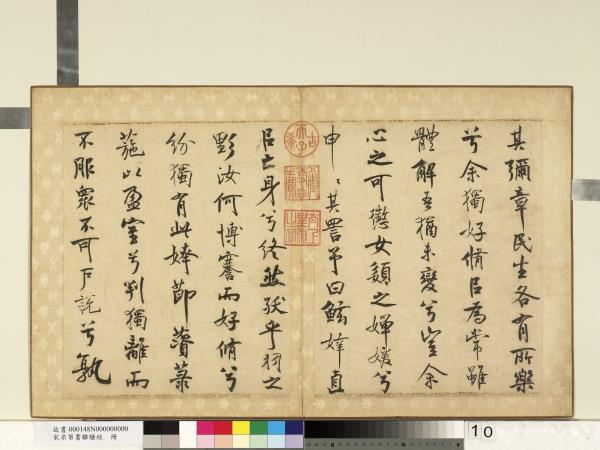 其彌章民生各有所樂
兮余獨好脩㠯為常雖
體解吾猶未變兮豈余
心之可懲女嬃之嬋媛兮
申〻其詈予曰鮌婞直
㠯亡身兮終然殀乎羽之
野汝何博謇而好脩兮
紛獨有此姱節薋菉
葹以盈室兮判獨離而
不服眾不可戶說兮孰
古希天子
八徵耄念之寶
太上皇帝之寶
故書 000148N000000000
宋米芾書離騷經 冊
10